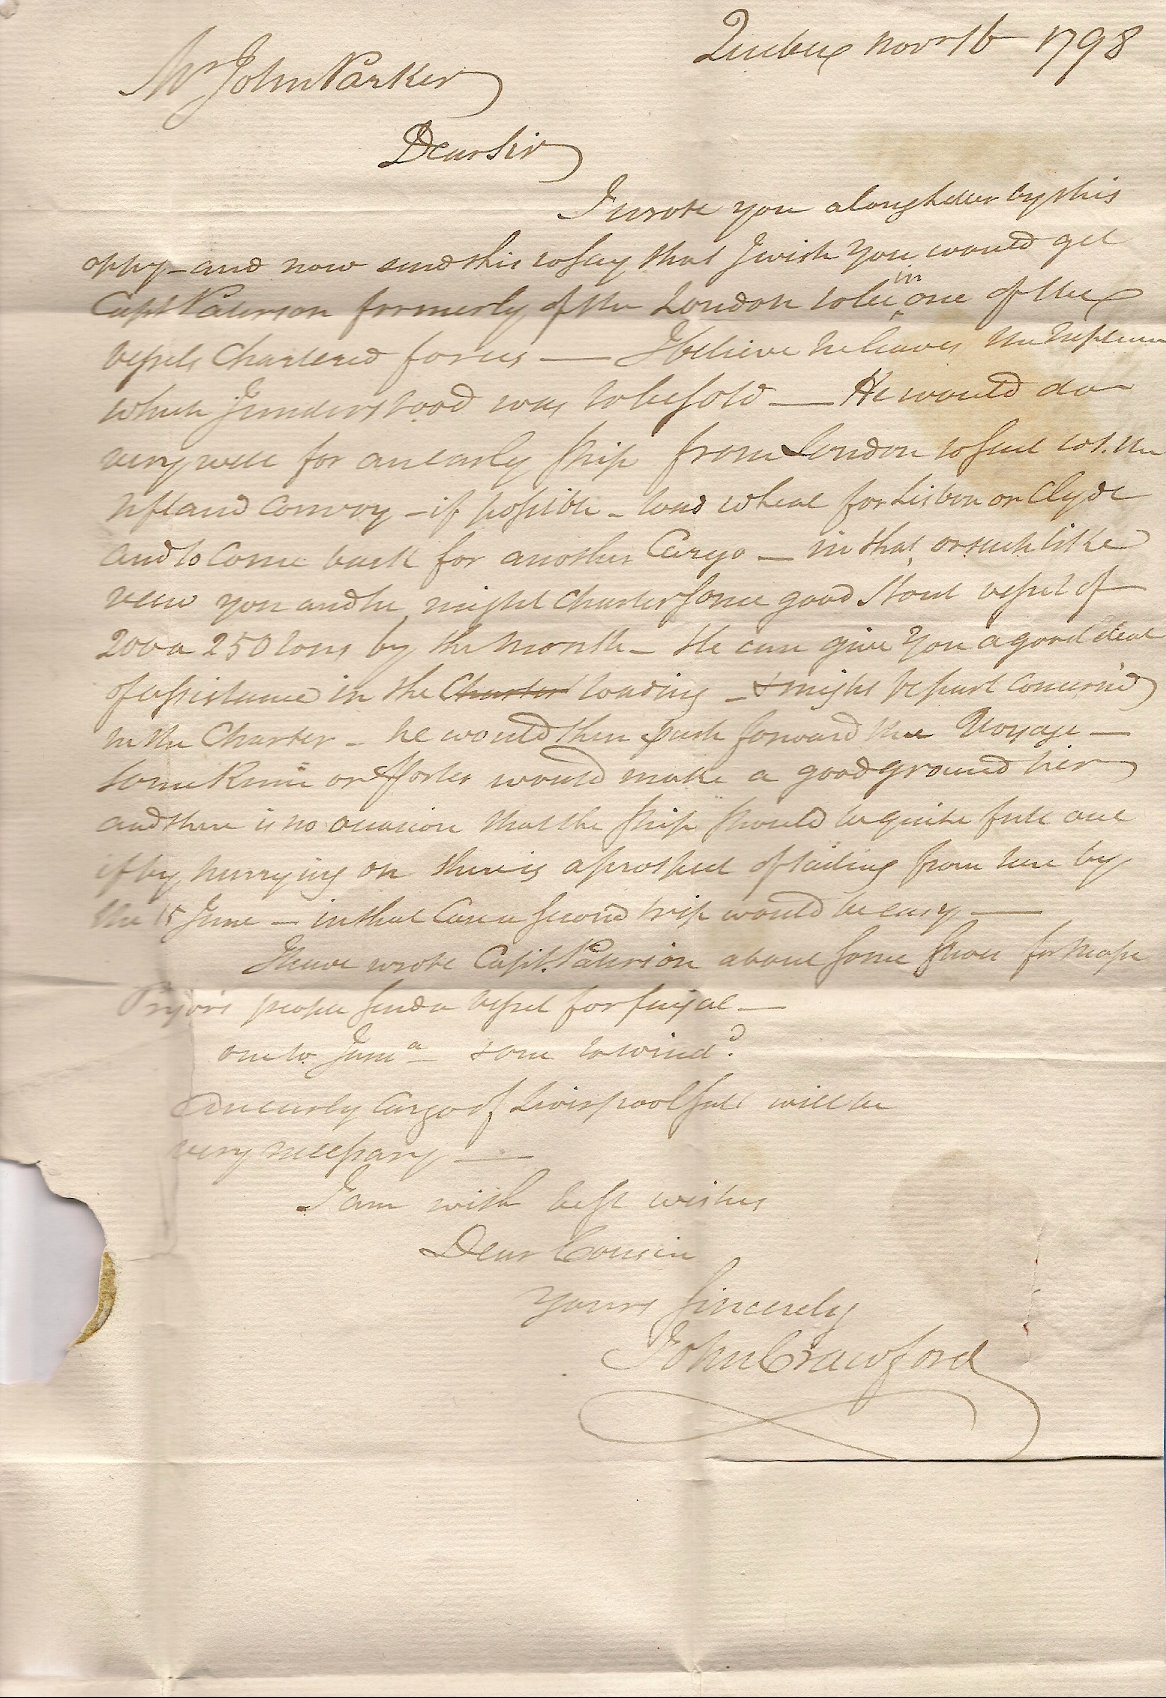 Quebec Novr 16 1798
Mr John Parker
Dear Sir
I wrote you a long letter by this
oppy - and now send this to say that I wish you would get
Capt Paterson formerly of the London to be in one of the
vessels Chartered for us — I believe he leaves the Neptune
which I understood was to be sold — He would do
very well for an early ship from London to sail wt. the
Nfland Convoy - if possible - load wheat for Lisbon or Clyde
and to Come back for another Cargo - in that or such like
view you and he might Charter some good Stout vessel of
200 a 250 tons by the Month - He can give you a good deal
of assistance in the Charter loading - & might be part concern'd
in the Charter - he would then push forward the Voyage -
Some Rum or would make a good ground tier
and there is no occasion that the ship should be quite full out
if by hurrying on there is a prospect of sailing from here by
the 15 June - in that Case a second trip would be easy —
I have wrote Capt. Paterson about some for Messr
Pryors send a vessel for —
one to Jama - & one to Wind.d
An early Cargo of Liverpool salt will be
very necessary —
I am with best wishes
Dear Cousin
Yours Sincerely
John Crawford